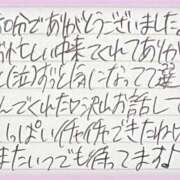 60分でありがとうございました
お忙しい中来てくれてありが
と(泣)ずっと気になってて選
んでくれたり沢山お話して
いっぱいイチャイチャできたね♡
またいつでも待ってます♪